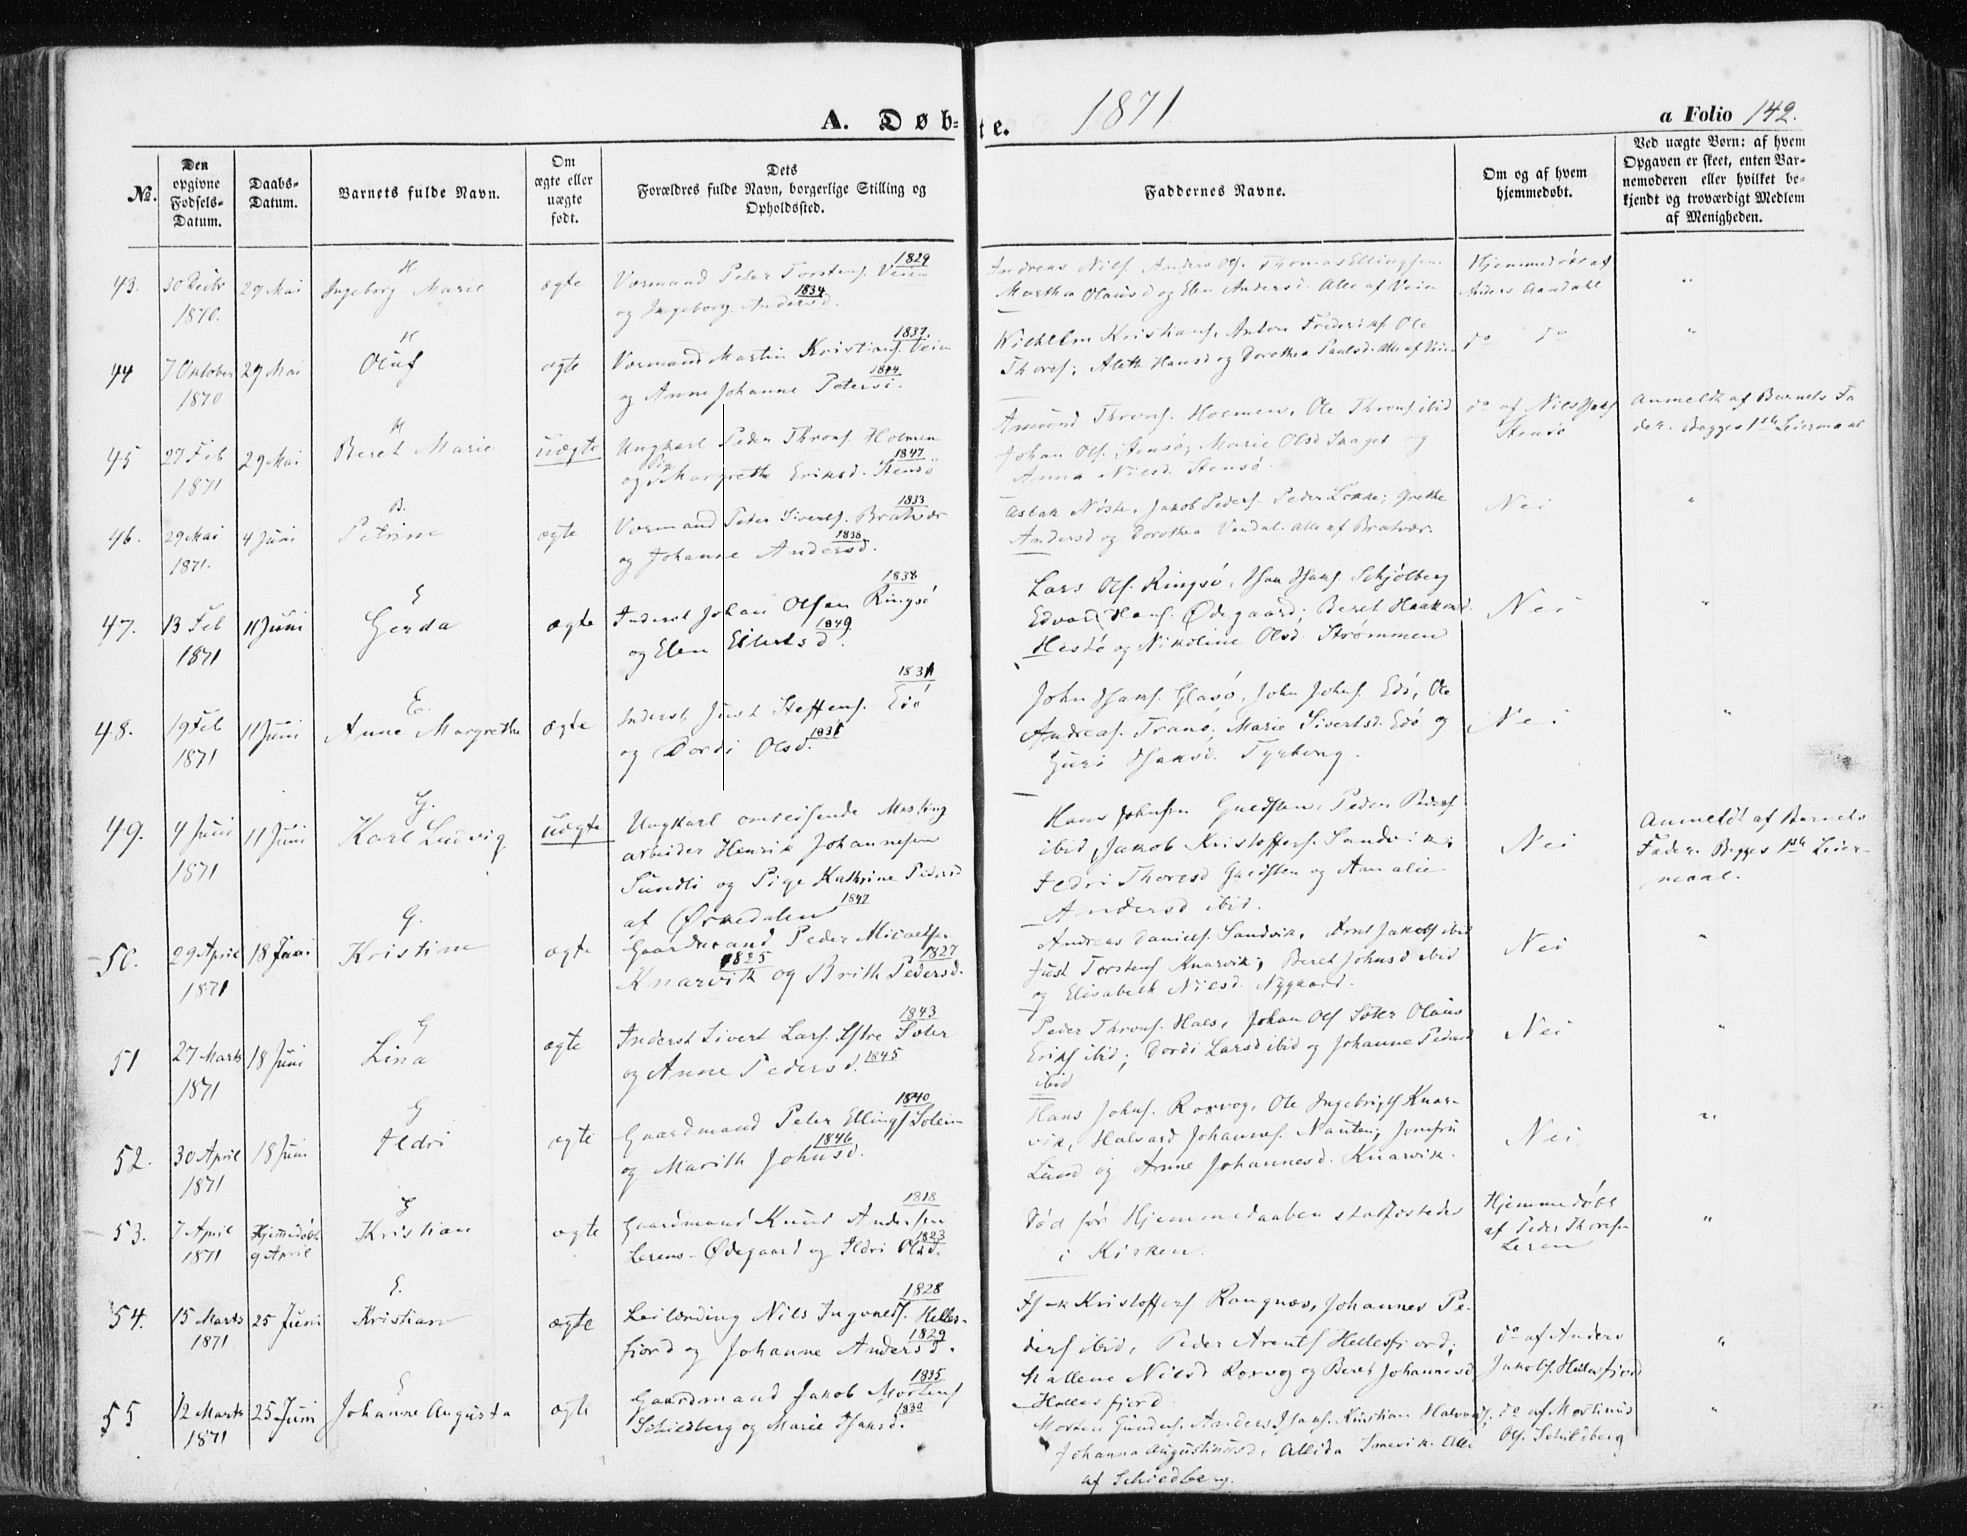 A. Døbte. 1871
a Folio 142.
№.
Den opgivne Fødsels-Datum.
Daabs-Datum.
Barnets fulde Navn.
Om ægte eller uægte født.
Dets Forældres fulde Navn, borgerlige Stilling og Opholdssted.
Faddernes Navne.
Om og af hvem hjemmedøbt.
Ved uægte Børn: af hvem Opgaven er skeet, enten Barnemoderen eller hvilket bekjendt og troværdigt Medlem af Menigheden.
43. 30 1870. 29 Mai
H
Ingeborg Marie
ægte
Vormand Peter Torstens. Veien 1829
og Ingeborg Andersd. 1834
Andreas Nils. Anders Ols. Thomas Ellingsen
Martha Olausd og Elen Andersd. Alle af Veien
Hjemmedøbt af
Anders Aandahl
"
44 7 Oktober 1870 29 Mai
H
Oluf
ægte
Vormand Martin Kristians. Veien 1837.
og Anne Johanne Petersd. 1844
Wilhelm Kristians. Anton Frederiks Ole
Thores; Aleth Hansd og Dorothea Paulsd. Alle af Veien
do do
"
45 27 Feb 1871 29 Mai
H
Beret Marie
uægte
Ungkarl Peder Throns. Holmen
og Pige Margrethe Eriksd. Stensø 1847
Amund Throns. Holmen, Ole Throns ibid
Johan Ols. Stensø, Marie Olsd Skaget og
Anna Nilsd. Stensø.
do af Nils
Stensø
Anmeldt af Barnets Fa
der. Begges 1ste Leiermaal
46. 29 Mai 1871. 4 Juni
B.
Petrine
ægte
Vormand Peter Siverts. Bratvær 1833
og Johanne Andersd. 1838
Aslak Nøste, Jakob Peders. Peder Lokke; Grethe
Andersd og Dorothea Vendal. Alle af Bratvær.
Nei
"
47. 13 Feb 1871 11 Juni
E
Gerda
ægte
Inderst Johan Olsen Ringsø 1838
og Elen Eilertsd. 1849
Lars Ols. Ringsø, Hans Schjølberg
Edvard Hans. Ødegaard; Beret Haakonsd.
Hestø og Nikoline Olsd. Strømmen
Nei
"
48. 19 Feb 1871 11 Juni
E.
Anne Margrethe
ægte
Inderst Just Steffens. Edø 1831
og Dordi Olsd.
John Hans. Glasø, John Johns. Edø, Ole
Andreas. Trano; Marie Sivertsd. Edø og
Guri Hansd. Tyrhoug.
Nei
"
49. 4 Juni 1871 11 Juni
G.
Karl Ludvig
uægte
Ungkarl omreisende Messing
arbeider Henrik Johannesen
Sundli og Pige Kathrine Pedersd
af Ørkedalen 1847
Hans Johnsen Guldsten, Peder Peders
ibid, Jakob Kristoffers. Sandvik;
Ildri Thoresd Guldsten og Amalie
Andersd ibid.
Nei
Anmeldt af Barnets
Fader. Begges 1ste Leier-
maal.
50. 29 April 1871 18 Juni
G.
Kristine
ægte
Gaardmand Peder Micaels.
1825 1827
Knarvik og Brith Pedersd.
Andreas Daniels. Sandvik, Arnt Jakobs ibid
Just Torstens Knarvik; Beret Johnsd ibid
og Elisabeth Nilsd. Nygaard.
Nei
"
51 27 Marts 1871 18 Juni
G
Lina
ægte
Inderst Sivert Lars. Istre Soter 1843
og Anne Pedersd. 1845
Peder Throns. Hals, Johan Ols Soter Olaus
Eriks ibid; Dordi Larsd ibid og Johanne Pedersd
ibid
Nei
"
52. 30 April 1871 18 Juni
G
Ildri
ægte
Gaardmand Peter Ellings Solein 1840
og Marith Johnsd. 1846
Hans Johns. Rorvog, Ole Ingebrigts Knar-
vik, Halvard Johannes. Nauten; Jomfru
Lund og Anne Johannesd. Knarvik.
Nei
"
53. 7 April 1871 Hjemmedøbt 9 April
G
Kristian
ægte
Gaardmand Knud Andersen 1818
Lerens-Ødegaard og Ildri Olsd. 1823
Død før Hjemmedaaben stadfæstedes
i Kirken.
Hjemmedøbt
af Peder Thoresen
Leren
"
54. 15 Marts 1871 25 Juni
E.
Kristian
ægte
Leilænding Nils Ingvalds. Helles- 1828
fjord og Johanne Andersd. 1829
Kristoffers Rangnæs, Johannes Pe-
ders ibid, Peder Arents Hellesfjord;
Mallene Nilsd Rorvog og Beret Johannesd
Hellesfjord
do af Anders
Jakobs. Hellesfjord
"
55 12 Marts 1871 25 Juni
E
Johanne Augusta
ægte
Gaardmand Jakob Mortens 1835
Schiedberg og Marie Hansd. 1830
Morten Gunders. Anders Hans. Kristian Halvards.
Johanna Augustinusd, Allida Imrevik. Alle
af Schiedberg.
do af Martinus
Ols. Schildberg
"